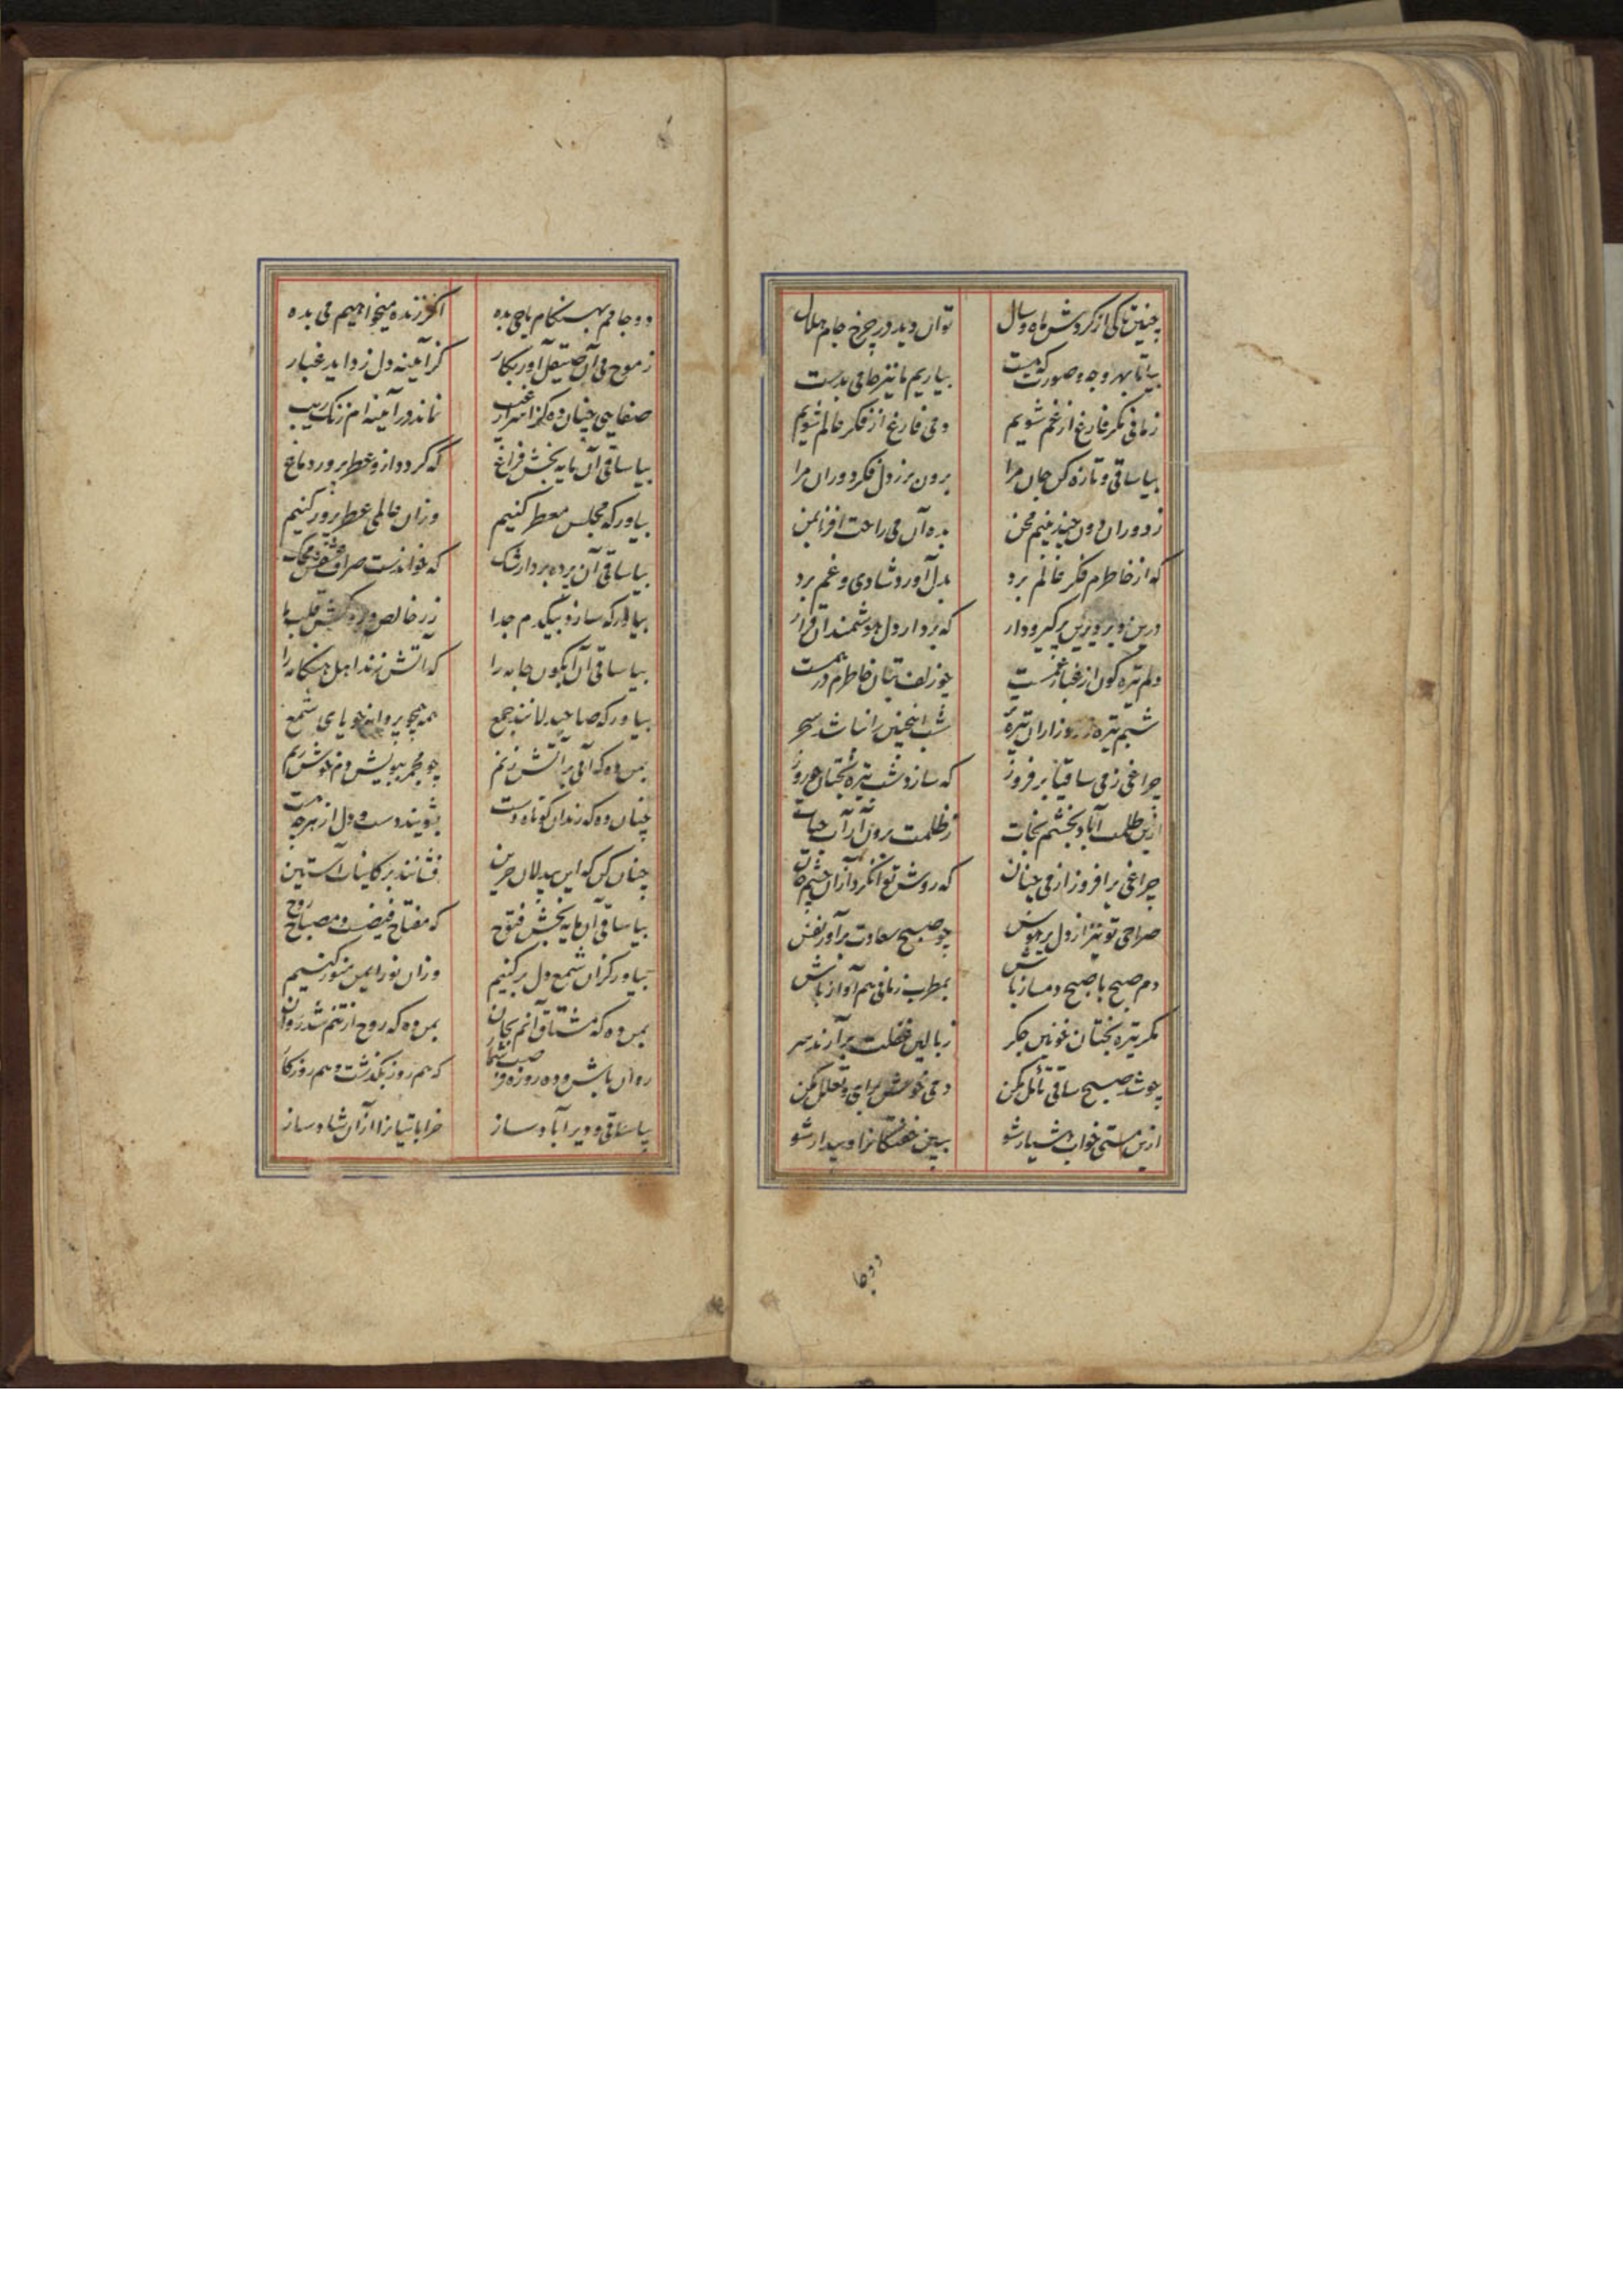 چنین تا کی از گردش ماه و سال
توان دید در چرخ جام هلال
بیا تا بهر وجه و صورت که هست
بیاریم ما نیز جامی بدست
زمانی مگر فارغ از غم شویم
دمی فارغ از فکر عالم شویم
بیا ساقی و تازه کن جان مرا
برون بر ز دل فکر دوران مرا
ز دوران دون چند بینم محن
بده آن می راحت افزا بمن
که از خاطرم فکر عالم برد
بدل آورد شادی و غم برد
درین دیر دیرین پر گیر و دار
که برد از دل هوشمندان قرار
دلم تیره گون از غبار غمست
چو زلف بتان خاطرم درهمست
شبم تیره و روزم از آن تیره‌تر
شب اینچنین را نباشد سحر
چراغی ز می ساقیا بر فروز
که سازد شب تیره بختان چو روز
ازین ظلمت آباد بخشم نجات
ز ظلمت برون آر آب حیات
چراغی بر افروز از می چنان
که روشن توان کرد از آن چشم جان
صراحی تو نیز از دل پر هوس
چو صبح سعادت برآور نفس
دم صبح با صبح دمساز باش
بمطرب زمانی هم آواز باش
مگر تیره بختان خونین جگر
ز بالین غفلت برآرند سر
چو شد صبح ساقی تأمل مکن
دمی خوش برآی و تعلل مکن
ازین مستی خواب هشیار شو
ببین خفتگانرا و بیدار شو
دو جا
دو جامم بهنگام باحی بده
اگر زنده میخواهیم می بده
ز موج می آن صیقل آور بکار
کز آیینه دل زداید غبار
صفایی چنان ده کز اسرار غیب
نماند در آیینه‌ام زنگ ریب
بیا ساقی آن مایه بخش فراغ
که گردد ازو عطر پرور دماغ
بیاور که مجلس معطر کنیم
وزان عالمی عطر پرور کنیم
بیا ساقی آن پرده بردار شک
که خواندست صراف عشقش محک
بیاور که سازد بیکدم جدا
زر خالص
بیا ساقی آن آبگون جامه را
که آتش زند اهل هنگامه را
بیاور که صاحبدلانند جمع
همه همچو پروانه جویای شمع
بمن ده که آبی بر آتش زنم
چو مجمر ببویش دم خوش زنم
چنان ده که رندان کوتاه دست
بشویند دست و دل از هرچه هست
چنان کن که این بیدلان حزین
فشانند بر کاینات آستین
بیا ساقی آن مایه بخش فتوح
که مفتاح فیضست و مصباح روح
بیاور کزان شمع دل بر کنیم
وزان نور ایمن منور کنیم
بمن ده که مشتاق آنم بجان
بمن ده که روح از تنم شد روان
روان باش و ده روزه فرصت شمار
که هم روز بگذشت و هم روزگار
بیا ساقی و دیر آباد ساز
خراباتیانرا از آن شاد ساز